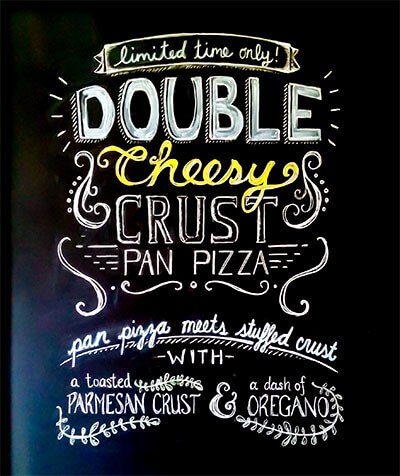 limited time only!
DOUBLE
Cheesy
CRUST
PAN PIZZA
pan pizza meets stuffed crust
-WITH-
a toasted a dash of
PARMESAN CRUST & OREGANO